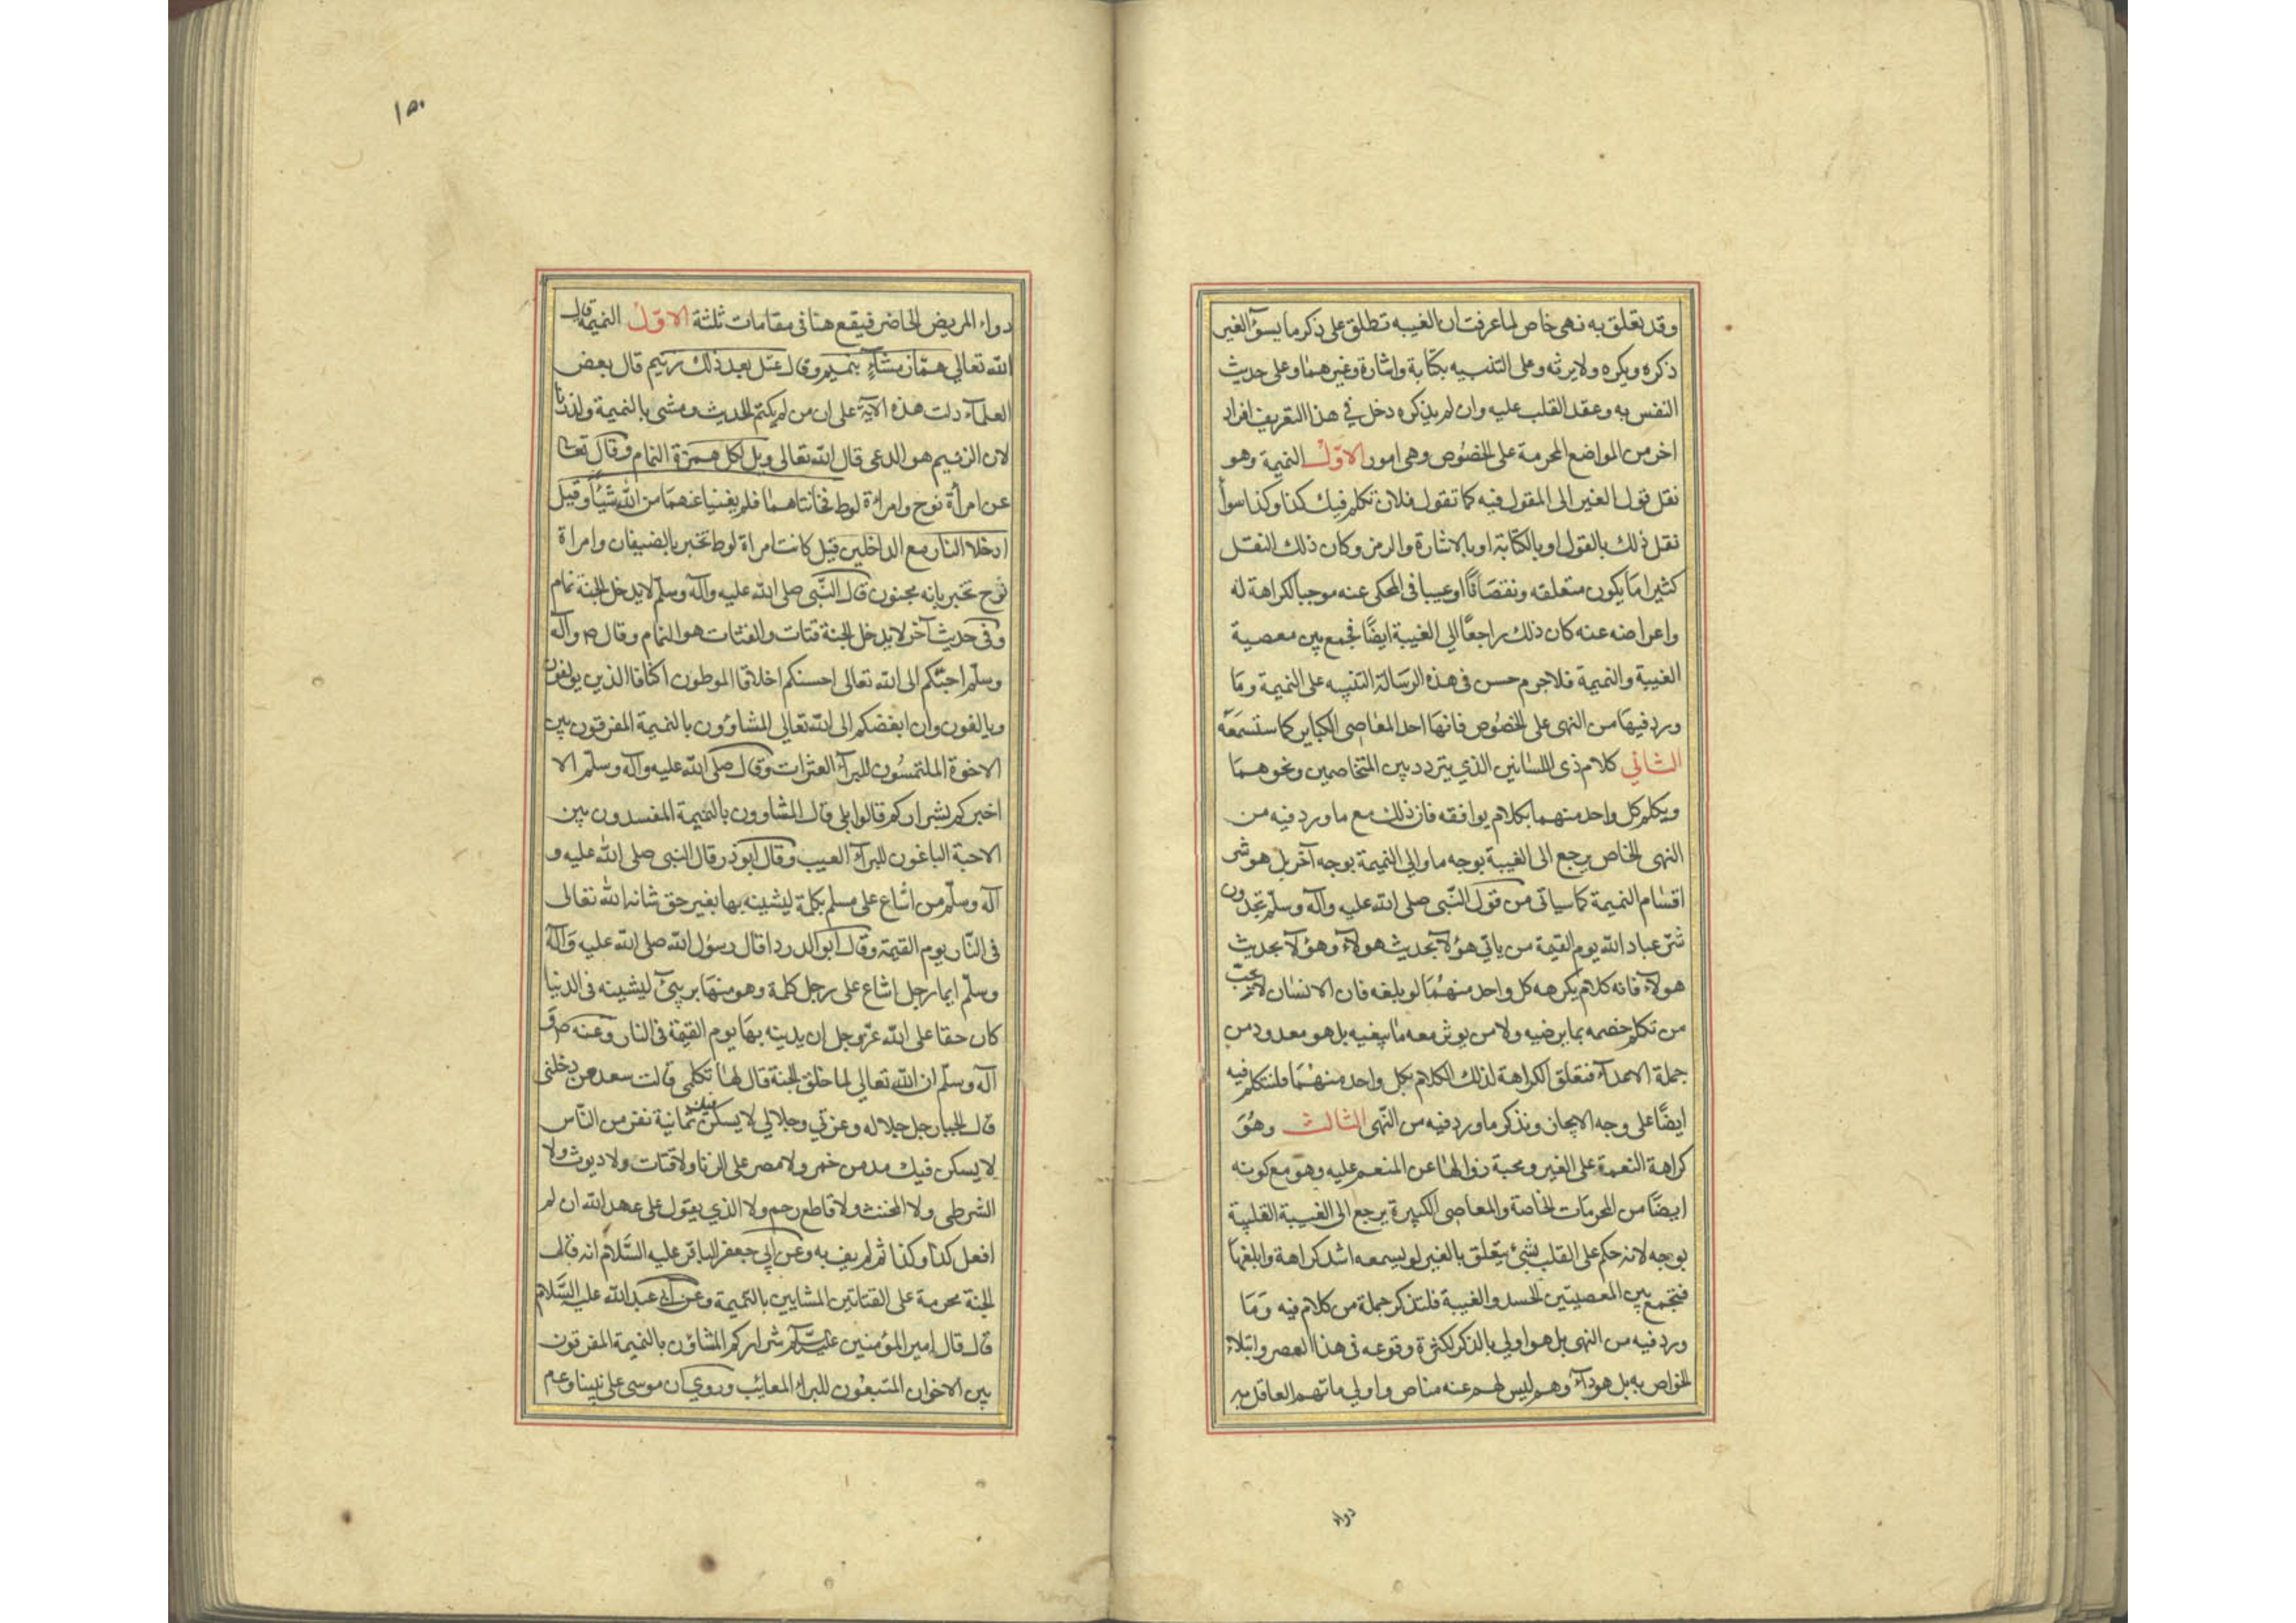 وقد يتعلق به نهى خاص لما عرفت ان الغيبه تطلق على ذكر ما يسؤ الغير
ذكره ويكره ولا يرثه وعلى التنبيه بكتابة واشارة وغيرهما وعلى حديث
النفس به وعقد القلب عليه وان لم يذكره دخل في هذا التعريف افراد
اخر من المواضع المحرمة على الخصوص وهى امور الاول النميمة وهو
نقل قول الغير الى المقول فيه كما تقول فلان تكلم فيك كذا وكذا سوآ
نقل ذلك بالقول او بالكتابة او بالاشارة والرمز وكان ذلك النقل
كثيرا ما يكون متعلقه ونقصانًا او عيبا فى المحكى عنه موجبا لكراهة له
واعراضه عنه كان ذلك راجعًا الى الغيبة ايضًا فجمع بين معصية
الغيبة والنميمة فلاجرم حسن فى هذه الرسالة التنبيه على النميمة وما
ورد فيها من النهى على الخصوص فانها احد المعاصى الكباير كما ستسمعه
الثاني كلام ذى اللسانين الذي يتردد بين المتخاصمين ونحوهما
ويكلم كل واحد منهما بكلام يوافقه فان ذلك مع ما ورد فيه من
النهى الخاص يرجع الى الغيبة بوجه ما والى النميمة بوجه آخر بل هو شر
اقسام النميمة كما سياتى من قول النبى صلى الله عليه وآله وسلم تجدون
شر عباد الله يوم القيمة من ياتي هؤلآ بحديث هولآء وهؤلآ بحديث
هولآء فانه كلام يكرهه كل واحد منهما لو بلغه فان الانسان لا يحب
من تكلم خصمه بما يرضيه ولا من يوثر معه ما يبغيه بل هو معدود من
جملة الاعدآء فتعلق الكراهة لذلك الكلام بكل واحد منهما فلنتكلم فيه
ايضًا على وجه الايجاز ونذكر ما ورد فيه من النهى الثالث وهو
كراهة النعمة على الغير ومحبة زوالها عن المنعم عليه وهو مع كونه
ايضًا من المحرمات الخاصة والمعاصى الكبيرة يرجع الى الغيبة القلبية
بوجه لانه حكم على القلب بشئ يتعلق بالغير لو يسمعه اشد كراهة وابلغها
فتجمع بين المعصيتين الحسد والغيبة فلنذكر جملة من كلام فيه وما
ورد فيه من النهى بل هو اولى بالذكر لكثرة وقوعه فى هذا العصر وابتلاء
الخواص به بل هو دآء وهم ليس لهم عنه مناص واولى ما تهم العاقل بر
دواء
١٥٠
دواء المريض الحاضر فيقع هنا فى مقامات ثلثة الاول النميمة قال
الله تعالى هماز مشآء بنميم وقال عتل بعد ذلك زنيم قال بعض
العلمآء دلت هذه الآية على ان من لم يكتم الحديث ومشى بالنميمة ولد زنا
لان الزنيم هو الدعى قال الله تعالى ويل لكل همزة النمام وقال تعا
عن امرأة نوح وامرأة لوط فخانتاهما فلم يغنيا عنهما من الله شيئًا وقيل
ادخلا النار مع الداخلين قيل كانت امراة لوط تخبر بالضيفان وامراة
نوح تخبر بانه مجنون قال النبى صلى الله عليه وآله وسلم لا يدخل الجنة نمام
وفى حديث آخر لا يدخل الجنة قتات والقتات هو النمام وقال ص وآله
وسلم احبكم الى الله تعالى احسنكم اخلاقا الموطون اكنافا الذين يولفون
ويالفون وان ابغضكم الى الله تعالى المشاؤون بالنميمة المفرقون بين
الاخوة الملتمسون للبرآء العثرات وقال صلى الله عليه وآله وسلم الا
اخبركم بشراركم قالوا بلى قال المشاوون بالنميمة المفسدون بين
الاحبة الباغون للبرآء العيب وقال ابو ذر قال النبى صلى الله عليه و
آله وسلم من اشاع على مسلم بكلمة ليشينه بها بغير حق شانه الله تعالى
فى النار يوم القيمة وقال ابو الدردا قال رسول الله صلى الله عليه وآله
وسلم ايما رجل اشاع على رجل كلمة وهو منها بريئ ليشينه فى الدنيا
كان حقا على الله عز وجل ان يدينه بها يوم القيمة فى النار وعنه ص و
آله وسلم ان الله تعالى لما خلق الجنة قال لها تكلمى قالت سعد من دخلنى
قال الجبار جل جلاله وعزتي وجلالي لا يسكن فيك ثمانية نفر من الناس
لا يسكن فيك مدمن خمر ولا مصر على الزنا ولا قتات ولا ديوث ولا
الشرطى ولا المخنث ولا قاطع رحم ولا الذي يقول على عهد الله ان لم
افعل كذا وكذا ثم لم يف به وعن ابي جعفر الباقر عليه السلام انه قال
الجنة محرمة على القتاتين المشايين بالنميمة وعن ابى عبد الله عليه السلام
قال قال امير المؤمنين عليه السلام شراركم المشاؤن بالنميمة المفرقون
بين الاخوان المتبعون للبرآء المعائب وروي ان موسى على نبينا وعم